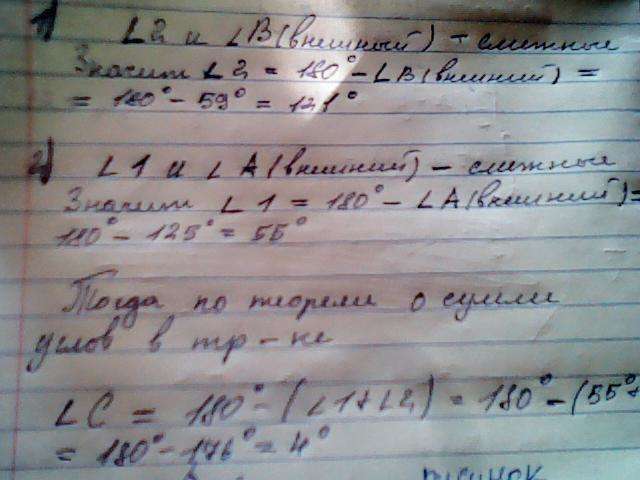 1) ∠2 и ∠B(внешный) - смежные
Значит ∠2 = 180° - ∠B(внешний) =
= 180° - 59° = 121°
2) ∠1 и ∠A(внешний) - смежные
Значит ∠1 = 180° - ∠A(внешний) =
180° - 125° = 55°
Тогда по теореми о сумми
углов в тр-ке
∠C = 180° - (∠1+∠2) = 180° - (55°+
= 180° - 176° = 4°
рисунок